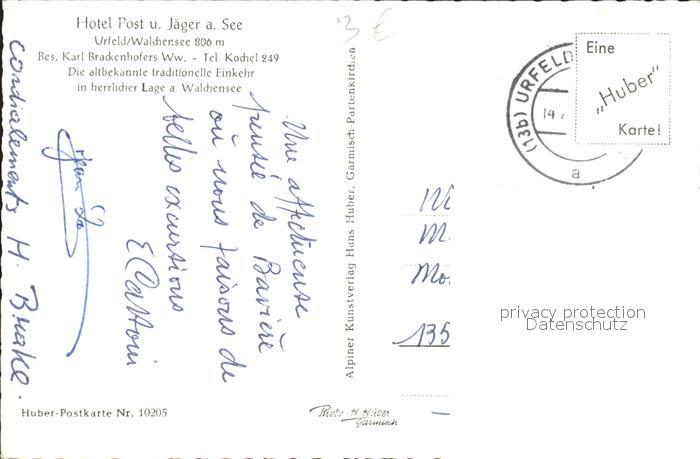 Hotel Post u. Jäger a. See
Urfeld/Walchensee 806 m
Bes. Karl Brackenhofers Ww. - Tel. Kochel 249
Die altbekannte traditionelle Einkehr
in herrlicher Lage a. Walchensee
3 €
Une affectueuse
pensée de Bavière
où nous faisons de
belles excursions
cordialements H. Brake.
Alpiner Kunstverlag Hans Huber, Garmisch-Partenkirchen
(13b) URFELD
14.
a
Eine
„Huber"
Karte!
M.
135
privacy protection
Datenschutz
Huber-Postkarte Nr. 10205
Photo-H. Huber
Garmisch